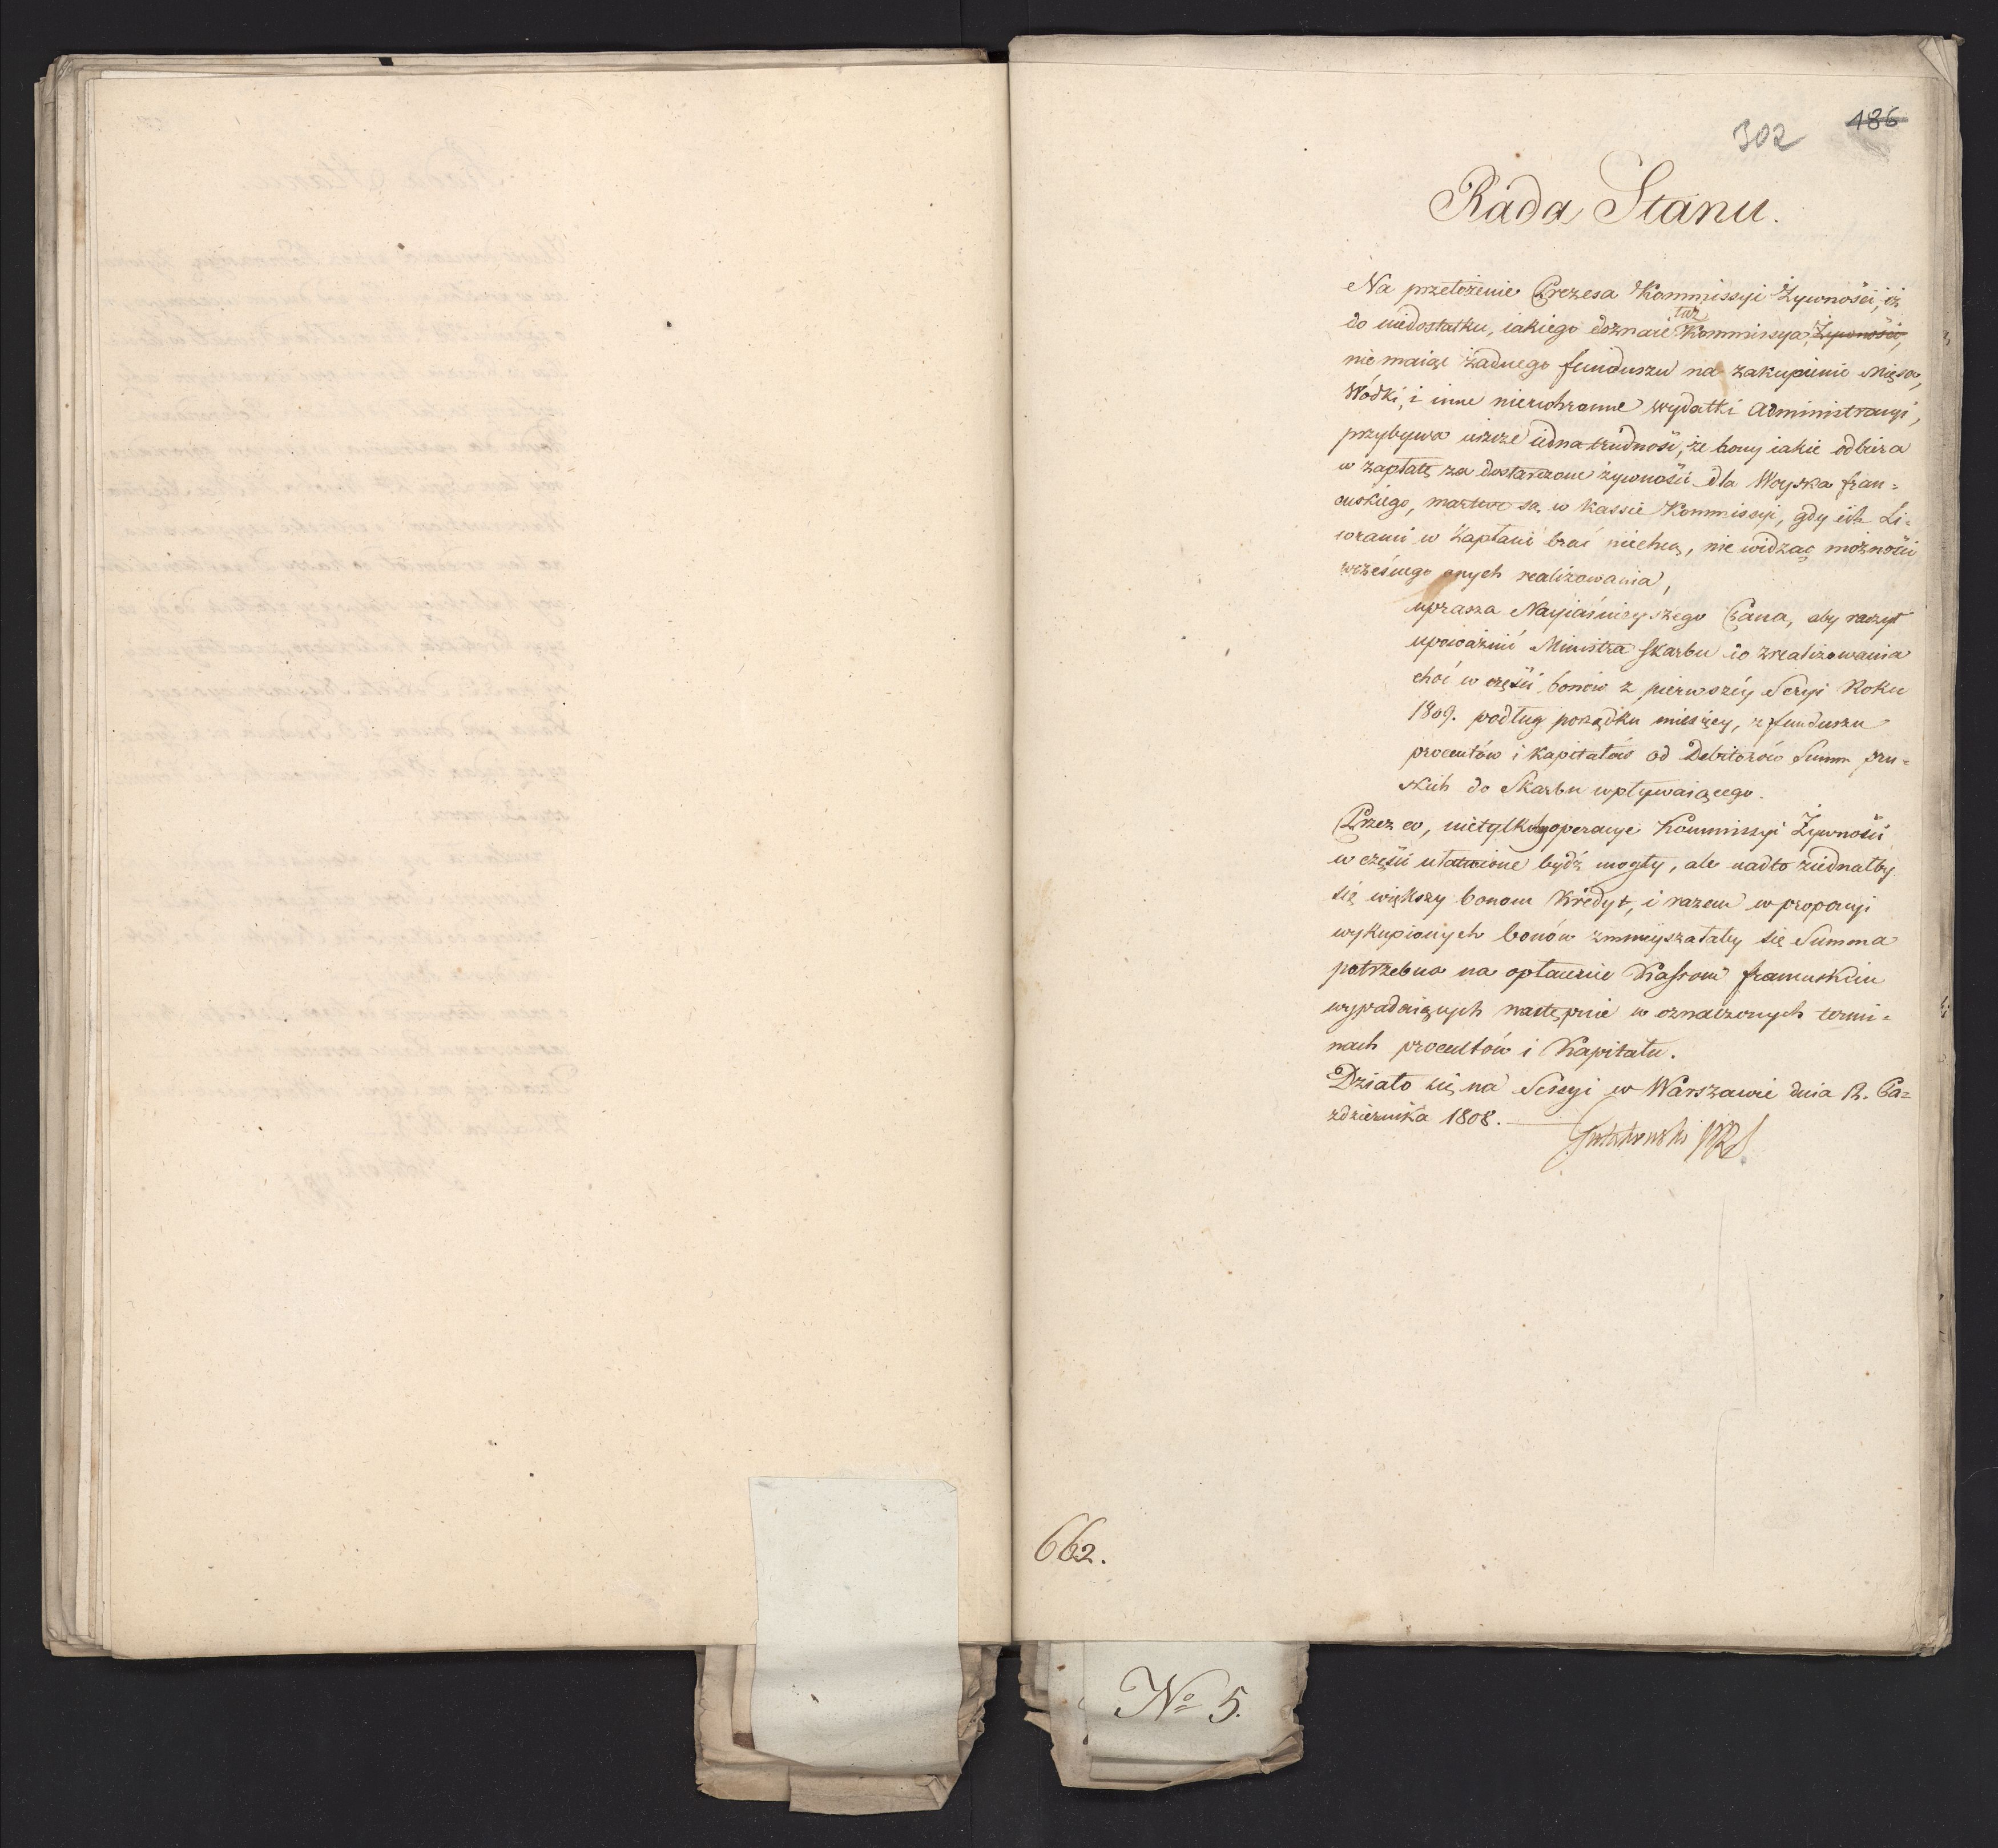 302 186
Rada Stanu.
Na przełożenie Prezesa Kommissyi Żywności, iż
do niedostatku, iakiego doznaie taż Kommissya, Żywności,
nie maiąc żadnego funduszu na zakupienie Mięsa,
Wódki, i inne nieuchronne wydatki Administracyi,
przybywa ieszcze iedna trudność, że bony iakie odbiera
w zapłatę za dostarczone żywności dla Woyska fran=
cuskiego, martwe są w Kassie Kommissyi, gdy ich Li=
weranci w zapłacie brać niechcą, nie widząc możności
wczesnego onych realizowania,
uprasza Nayiaśnieyszego Pana, aby raczył
upoważnić Ministra Skarbu do zrealizowania
choć w części bonów z pierwszéy Seryi Roku
1809. podług porządku miesięcy, z funduszu
procentów i Kapitałów od Debitorów Summ pru=
skich do Skarbu wpływaiącego.
Przez co, nietylkoby operacye Kommissyi Żywności
w części ułatwione bydź mogły, ale nadto ziednałby
się większy bonom Kredyt, i razem w proporcyi
wykupionych bonów zmnieyszałaby się Summa
potrzebna na opłacenie Kassom francuskim
wypadaiących następnie w oznaczonych termi=
nach procentów i Kapitału.
Działo się na Sessyi w Warszawie dnia 12. Pa=
ździernika 1808.
Gutakowski PRS
662.
No 5.